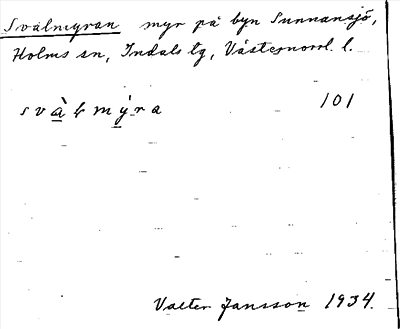 Svälmyran myr på byn Sunnansjö,
Holms sn, Indals tg, Västernorrl. l.
svàlmýra 101
Valter Jansson 1934.